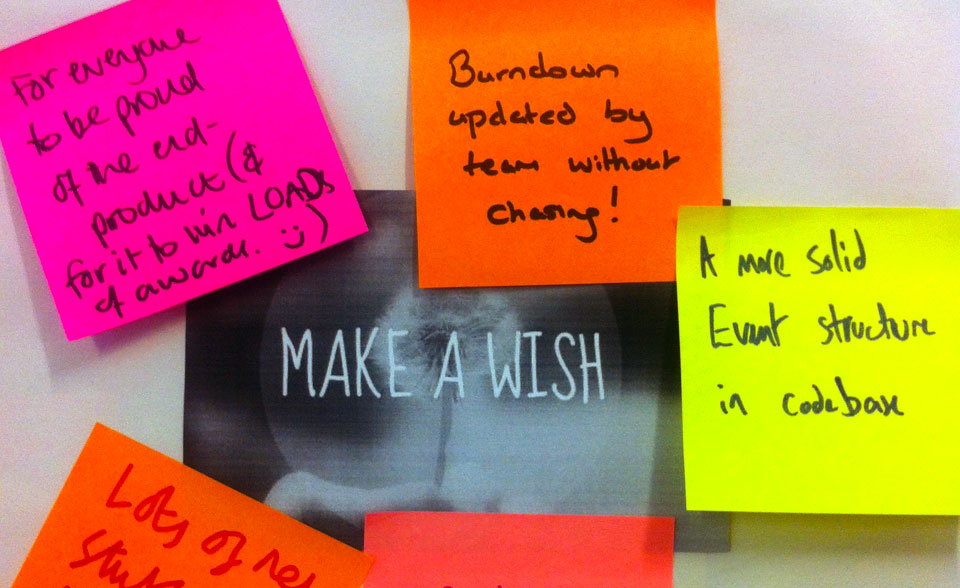 For everyone
to be proud
of the end-
product (&
for it to win LOADS
of awards. :)
Burndown
updated by
team without
chasing!
A more solid
Event structure
in codebase
MAKE A WISH
Lots of